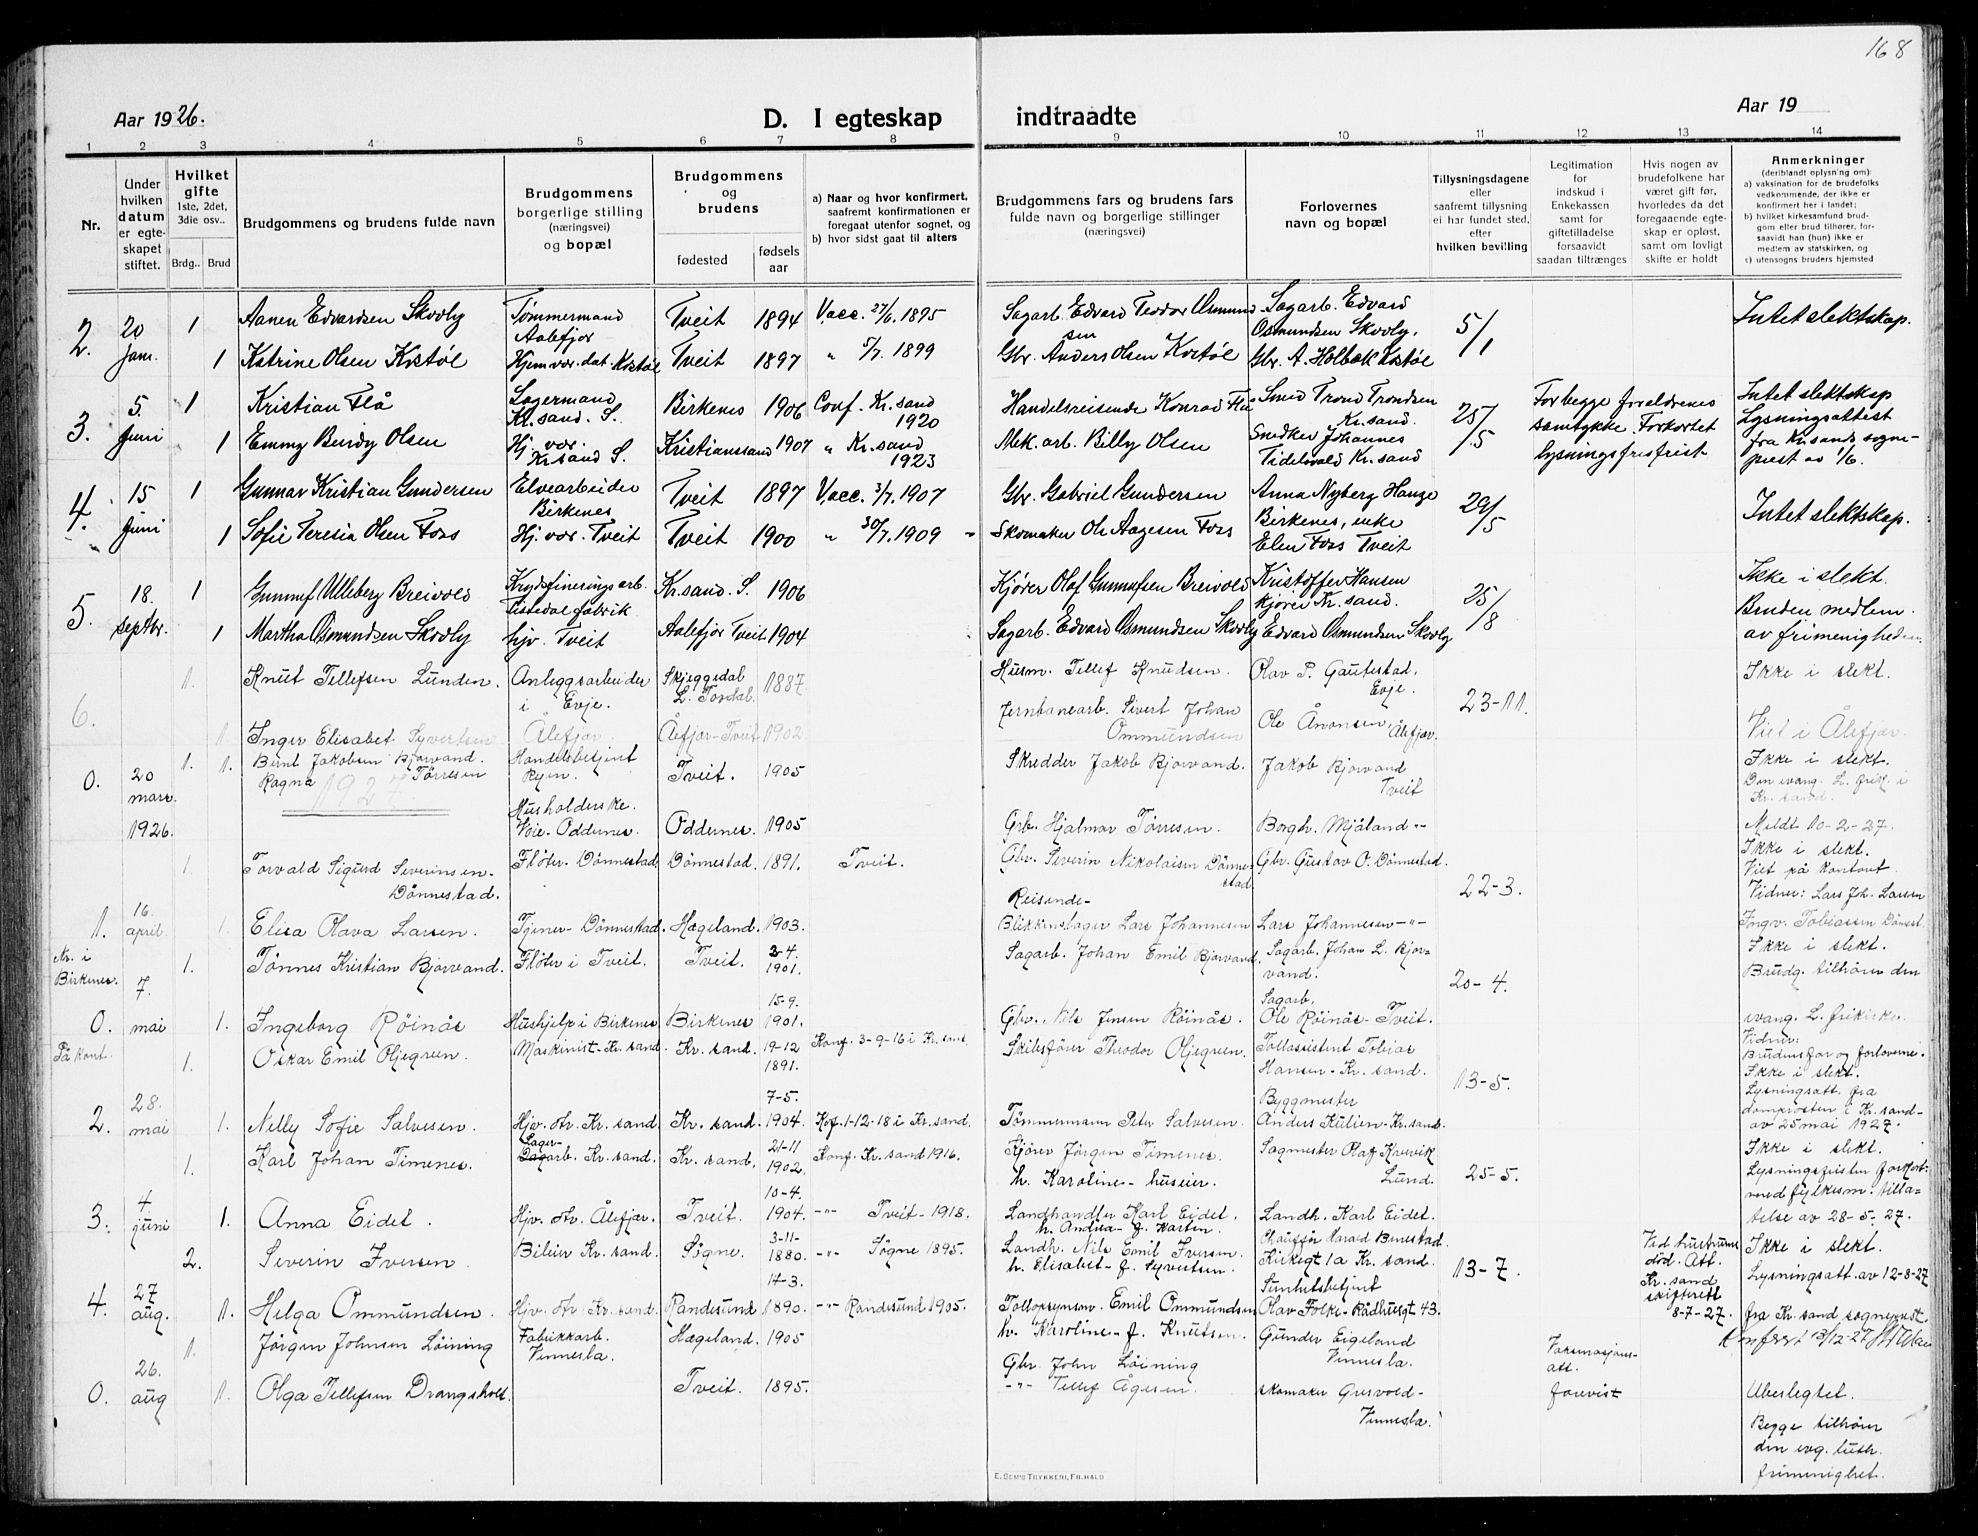 168
Aar 1926.
D. I egteskap indtraadte
Aar 19
1 2 3 4 5 6 7 8 9 10 11 12 13 14
Nr.
Under hvilken datum er egteskapet stiftet.
Hvilket gifte 1ste, 2det, 3die osv..
Brdg.. Brud
Brudgommens og brudens fulde navn
Brudgommens borgerlige stilling (næringsvei) og bopæl
Brudgommens og brudens
fødested
fødsels aar
a) Naar og hvor konfirmert, saafremt konfirmationen er foregaat utenfor sognet, og
b) hvor sidst gaat til alters
Brudgommens fars og brudens fars fulde navn og borgerlige stillinger (næringsvei)
Forlovernes navn og bopæl
Tillysningsdagene eller saafremt tillysning ei har fundet sted, efter hvilken bevilling
Legitimation for indskud i Enkekassen samt for giftetilladelse forsaavidt saadan tiltrænges
Hvis nogen av brudefolkene har været gift før, hvorledes da det foregaaende egteskap er opløst, samt om lovligt skifte er holdt
Anmerkninger (deriblandt oplysning om):
a) vaksination for de brudefolks vedkommende, der ikke er konfirmert her i landet;
b) hvilket kirkesamfund brudgom eller brud tilhører, forsaavidt han (hun) ikke er medlem av statskirken, og
c) utensogns bruders hjemsted
2. 20 Jan. 1 Aanen Edvardsen Skovly Tømmermand Aalefjær Tveit 1894 Vacc. 27/6 1895 Sagarb. Edvard Teodor Osmundsen Sagarb. Edvard Osmundsen Skovly. 5/1 Intet slektskap.
1 Katrine Olsen Kostøl Hjemvær. dat. Kostøl Tveit 1897 " 5/7 1899 Gbr. Anders Olsen Kostøl Gbr. A. Holbæk Kostøl
3. 5. Juni 1 Kristian Flå Lagermand Kr.sand. S. Birkenes 1906 Conf. Kr.sand 1920 Handelsreisende Konrad Flå Smed Trond Trondsen Kr.sand. 25/5 For begge forældrenes samtykke. Forkortet lysningsfrist Intet slektskap Lysningsattest fra Kr.sands sogneprest av 1/6.
1 Emmy Bendy Olsen Hj. vær. Kr.sand S. Kristianssand 1907 " Kr.sand 1923 Mek. arb. Billy Olsen Snedker Johannes Kr.sand
4. 15 Juni 1 Gunnar Kristian Gundersen Elvearbeider Birkenes Tveit 1897 Vacc. 3/7 1907 Gbr. Gabriel Gundersen Anna Nyberg Hauge Birkenes, enke 29/5 Intet slektskap.
1 Sofie Teresia Olsen Foss Hj. vær. Tveit Tveit 1900 " 30/7 1909 Skomaker Ole Aagesen Foss Elen Foss Tveit
5. 18. septbr. 1 Gunnuf Ulleberg Breivold Krydsfineringsarb. Tistedal fabrik Kr.sand. S. 1906 Kjører Olaf Gunnufsen Breivold Kristoffer Hansen kjører Kr.sand. 25/8 Ikke i slekt. Bruden medlem av frimenigheden.
1 Martha Osmundsen Skovly hjv. Tveit Aalefjær Tveit 1904 Sagarb. Edvard Osmundsen Skovly Edvard Osmundsen Skovly
6. 1. Knut Tellefsen Lunden. Anleggsarbeider i Evje. Skjeggedal L. Tovdal. 1887. Husm. Tellef Knudsen. Olav P. Gautestad. Evje. 23-11. Ikke i slekt.
1. Inger Elisabet Syvertsen Ålefjær. Ålefjær-Tveit 1902 Jernbanearb. Sivert Johan Ommundsen Ole Ånonsen, Ålefjær. Viet i Ålefjær.
1927.
0. 20 mars. 1926. 1. 1. Bernt Jakobsen Bjorvand. Ragna Tørresen Handelsbetjent Ryen. Tveit. 1905 Skredder Jakob Bjorvand. Jakob Bjorvand Tveit Ikke i slekt. Den evang. L. frik. i Kr. sand.
Husholderske. Voie-Oddernes. Oddernes. 1905 Grb. Hjalmar Tørresen. Borgh. Mjåland -"- Meldt 10-2-27.
1. 16. april. 1. Torvald Sigurd Severinsen-Dønnestad. Fløter-Dønnestad. Dønnestad. 1891. Tveit. Gbr. Severin Nikolaisen Dønnestad Gbr. Gustav O. Dønnestad. 22-3. Ikke i slekt. Viet på kontoret Vidner: Lars Joh. Larsen
1. Elisa Olava Larsen. Tjener-Dønnestad. Hægeland. 1903. Reisende-Blikkenslager Lars Johannesen Lars Johannesen -"- Ingv. Tobiassen Dønnest.
Nr. i Birkenes. 0. 7. mai På kont. 1. Tønnes Kristian Bjorvand. Fløter i Tveit. Tveit. 3-4 1901. Sagarb. Johan Emil Bjorvand Sagarb. Johan L. Bjorvand. 20-4. Ikke i slekt. Brudg. tilhører den evang. L. frikirke.
1. Ingeborg Røinås Hushjelp i Birkenes. Birkenes 15-9. 1901. Gbr. Nils Jensen Røinås. Sagarb. Ole Røinås-Tveit. Vidner: Brudens far og forloverne.
2. 28. mai 1. Oskar Emil Oljegreen. Maskinist-Kr. sand. Kr. sand. 19-12 1891. Konf. 3-9-16 i Kr. sand. Skibsfører Theodor Oljegreen. Tollassistent Tobias Hansen-Kr. sand. 13-5. Ikke i slekt. Lysningsatt. fra domprosten i Kr. sand- av 25 mai 1927.
1. Nelly Sofie Salvesen. Hjv. dtr. Kr. sand. Kr. sand. 7-5. 1904. Kof. 1-12-18 i Kr. sand. Tømmermann Peter Salvesen. Byggmester Anders Kulien-Kr. sand.
3. 4. juni 1. Karl Johan Timenes. Lagerarb. Kr. sand. Kr. sand. 21-11 1902. Konf. Kr. sand 1916. Kjører Jørgen Timenes. h. Karoline-huseier. Sagmester Olaf Kovevik Lund. 25-5. Ikke i slekt. Lysningsfristen forkort. ved fylkesm. tillatelse av 28-5.27.
1. Anna Eidet. Hjv. dtr. Ålefjær. Tveit. 10-4. 1904. -"- Tveit-1918. Landhandler Karl Eidet. h. Andrea f. Martin. Landh. Karl Eidet.
4. 27 aug. 2. Severin Iversen Bileier Kr. sand. Søgne. 3-11- 1880. -"- Søgne 1895. Landh. Nils Emil Iversen. h. Elisabet-f. Syvertsen. Chauffør Harald Benestad. Kirkegt 1a Kr. sand. 13-7. Ved hustruens död. Att. Kr. sand skifterett 8-7-27. Ikke i slekt. Lysningsatt. av 12-8-27 fra Kr. sand sogneprest.
1. Helga Ommundsen. Hjv. dtr. Kr. sand. Randesund 14-3. 1890. -"- Randesund 1905. Tollopsynsm. Emil Ommundsen h. Karoline-f. Knutsen. Sunhetsbetjent Olav Folke-Rådhusgt 43.
0. 26. aug 1. Jørgen Johnsen Løining Fabrikkarb. Vennesla. Hægeland. 1905 Gbr. John Løining Gunder Eigeland Vennesla. Vaksinasjonsatt. forevist
1. Olga Tellefsen Drangsholt. Tveit. 1895. -"- Tellef Ågesen. skomaker Gresvold-Vennesla. Ubeslegtet. Begge tilhører den evg. luth. frimenighet.
E. SEM'S TRYKKERI, FR.HALD